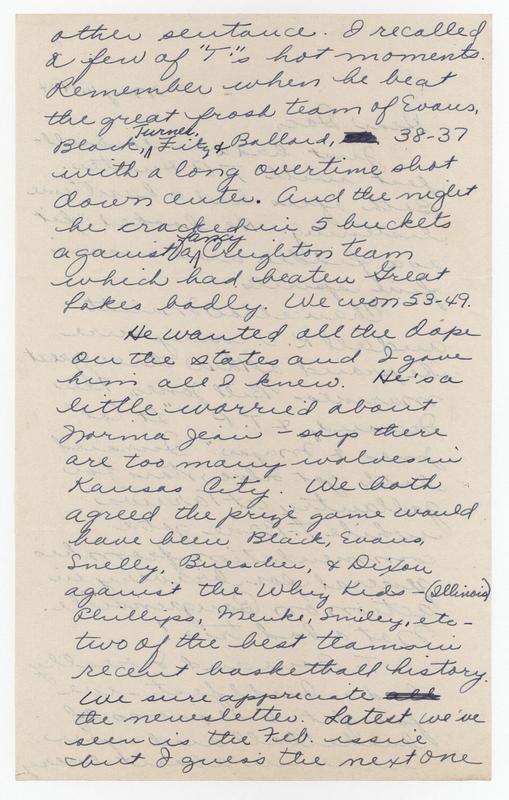 other sentance. I recalled
a few of "T"'s hot moments.
Remember when he beat
the great frosh team of Evans,
Black, Turner, Fitz, & Ballard, 38-37
with a long overtime shot
down center. And the night
he cracked in 5 buckets
against a fancy Creighton team
which had beaten Great
Lakes badly. We won 53-49.
He wanted all the dope
on the states and I gave
him all I knew. He's a
little worried about
Norma Jean - says there
are too many wolves in
Kansas City. We both
agreed the prize game would
have been Black, Evans,
Snelly, Buescher, & Dixon
against the Whiz Kids - (Illinois)
Phillips, Menke, Smiley, etc -
two of the best teams in
recent basketball history.
We sure appreciate
the newsletter. Latest we've
seen is the Feb. issue
but I guess the next one